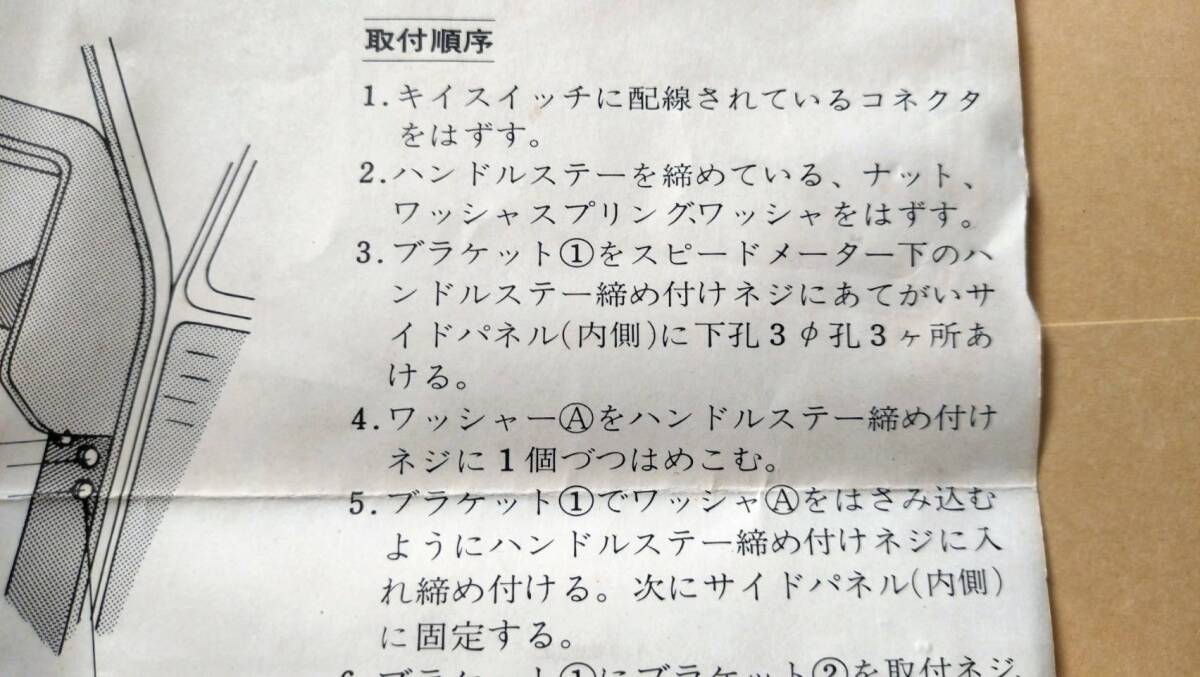 取付順序
1. キイスイッチに配線されているコネクタ
をはずす。
2. ハンドルステーを締めている、ナット、
ワッシャスプリング、ワッシャをはずす。
3. ブラケット①をスピードメーター下のハ
ンドルステー締め付けネジにあてがいサ
イドパネル(内側)に下孔3φ孔3ヶ所あ
ける。
4. ワッシャーⒶをハンドルステー締め付け
ネジに1個づつはめこむ。
5. ブラケット①でワッシャⒶをはさみ込む
ようにハンドルステー締め付けネジに入
れ締め付ける。次にサイドパネル(内側)
に固定する。
6. ブラケット①にブラケット②を取付ネジ、